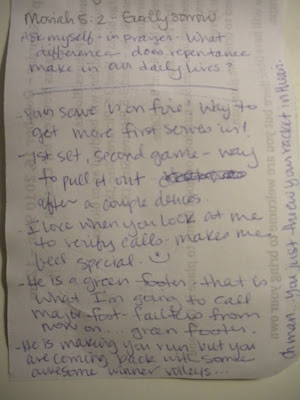 Moriah 5:2 - Godly sorrow
Ask myself - in prayer - What
difference does repentance
make in our daily lives?
- Your serve is on fire! Way to
get more first serves in!
- 1st set, second game - way
to pull it out
after a couple deuces.
- I love when you look at me
to verify calls - makes me
feel special.
- He is a green footer - that is
what I'm going to call
major foot-faulters from
now on... green footer.
- He is making you run but you
are coming back with some
awesome winner volleys...
Oh man... You just threw your racket in